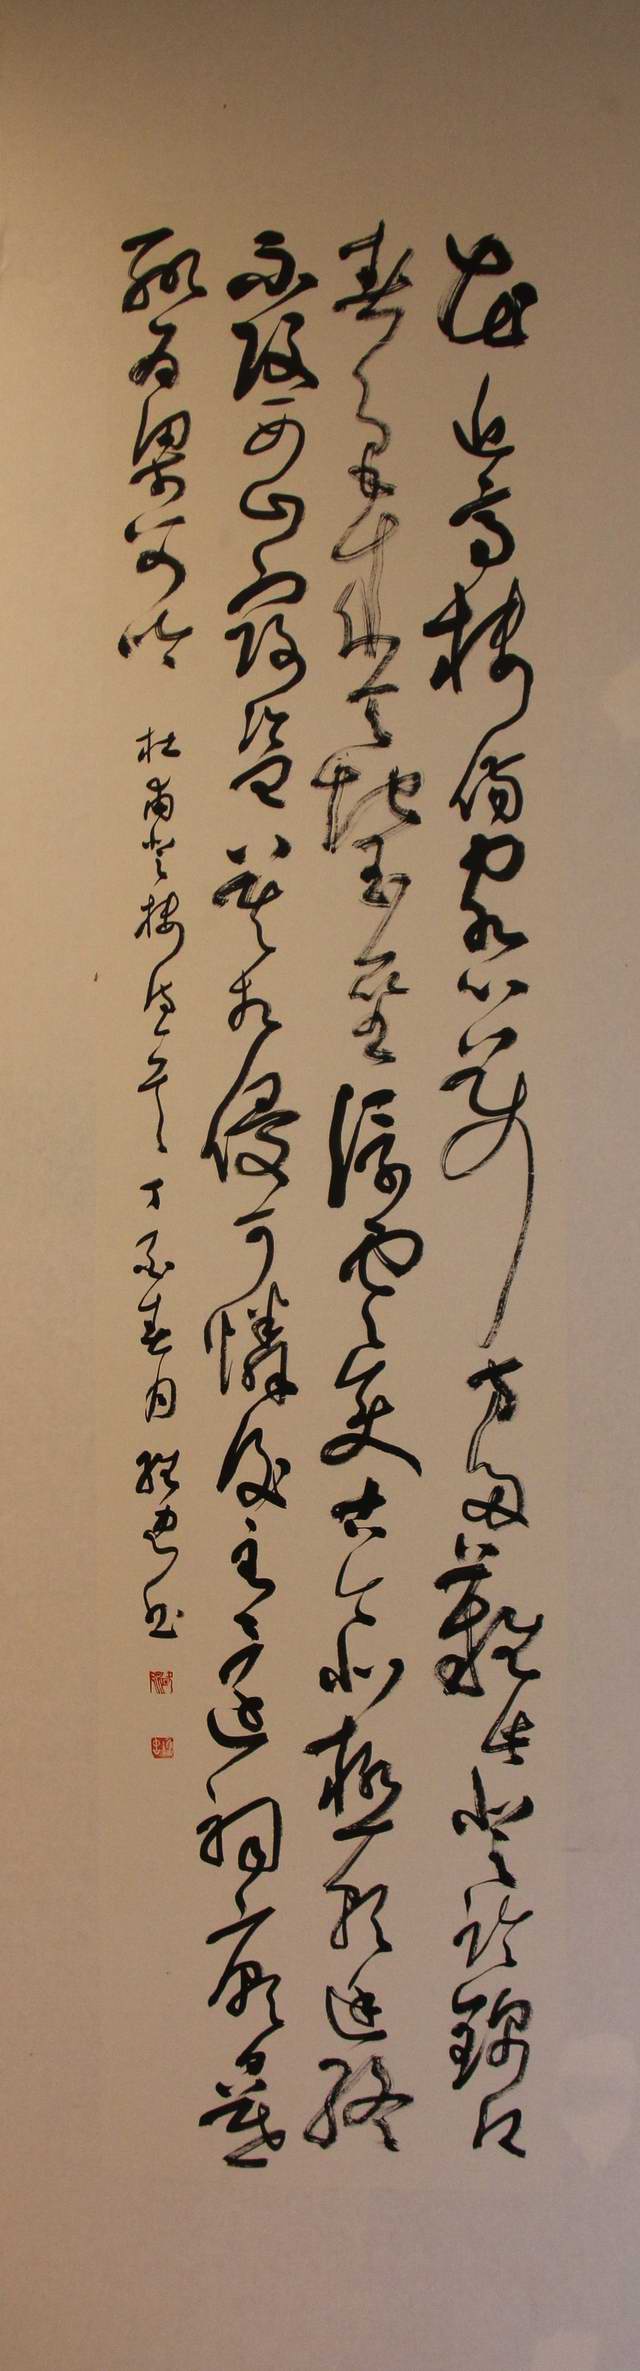 花近高樓傷客心萬方多難此登臨錦江
春色来天地玉壘浮雲變古今北極朝廷終
不改西山寇盜莫相侵可憐後主還祠廟日暮
聊為梁父吟 杜甫登樓詩一首 丁亥春月 书